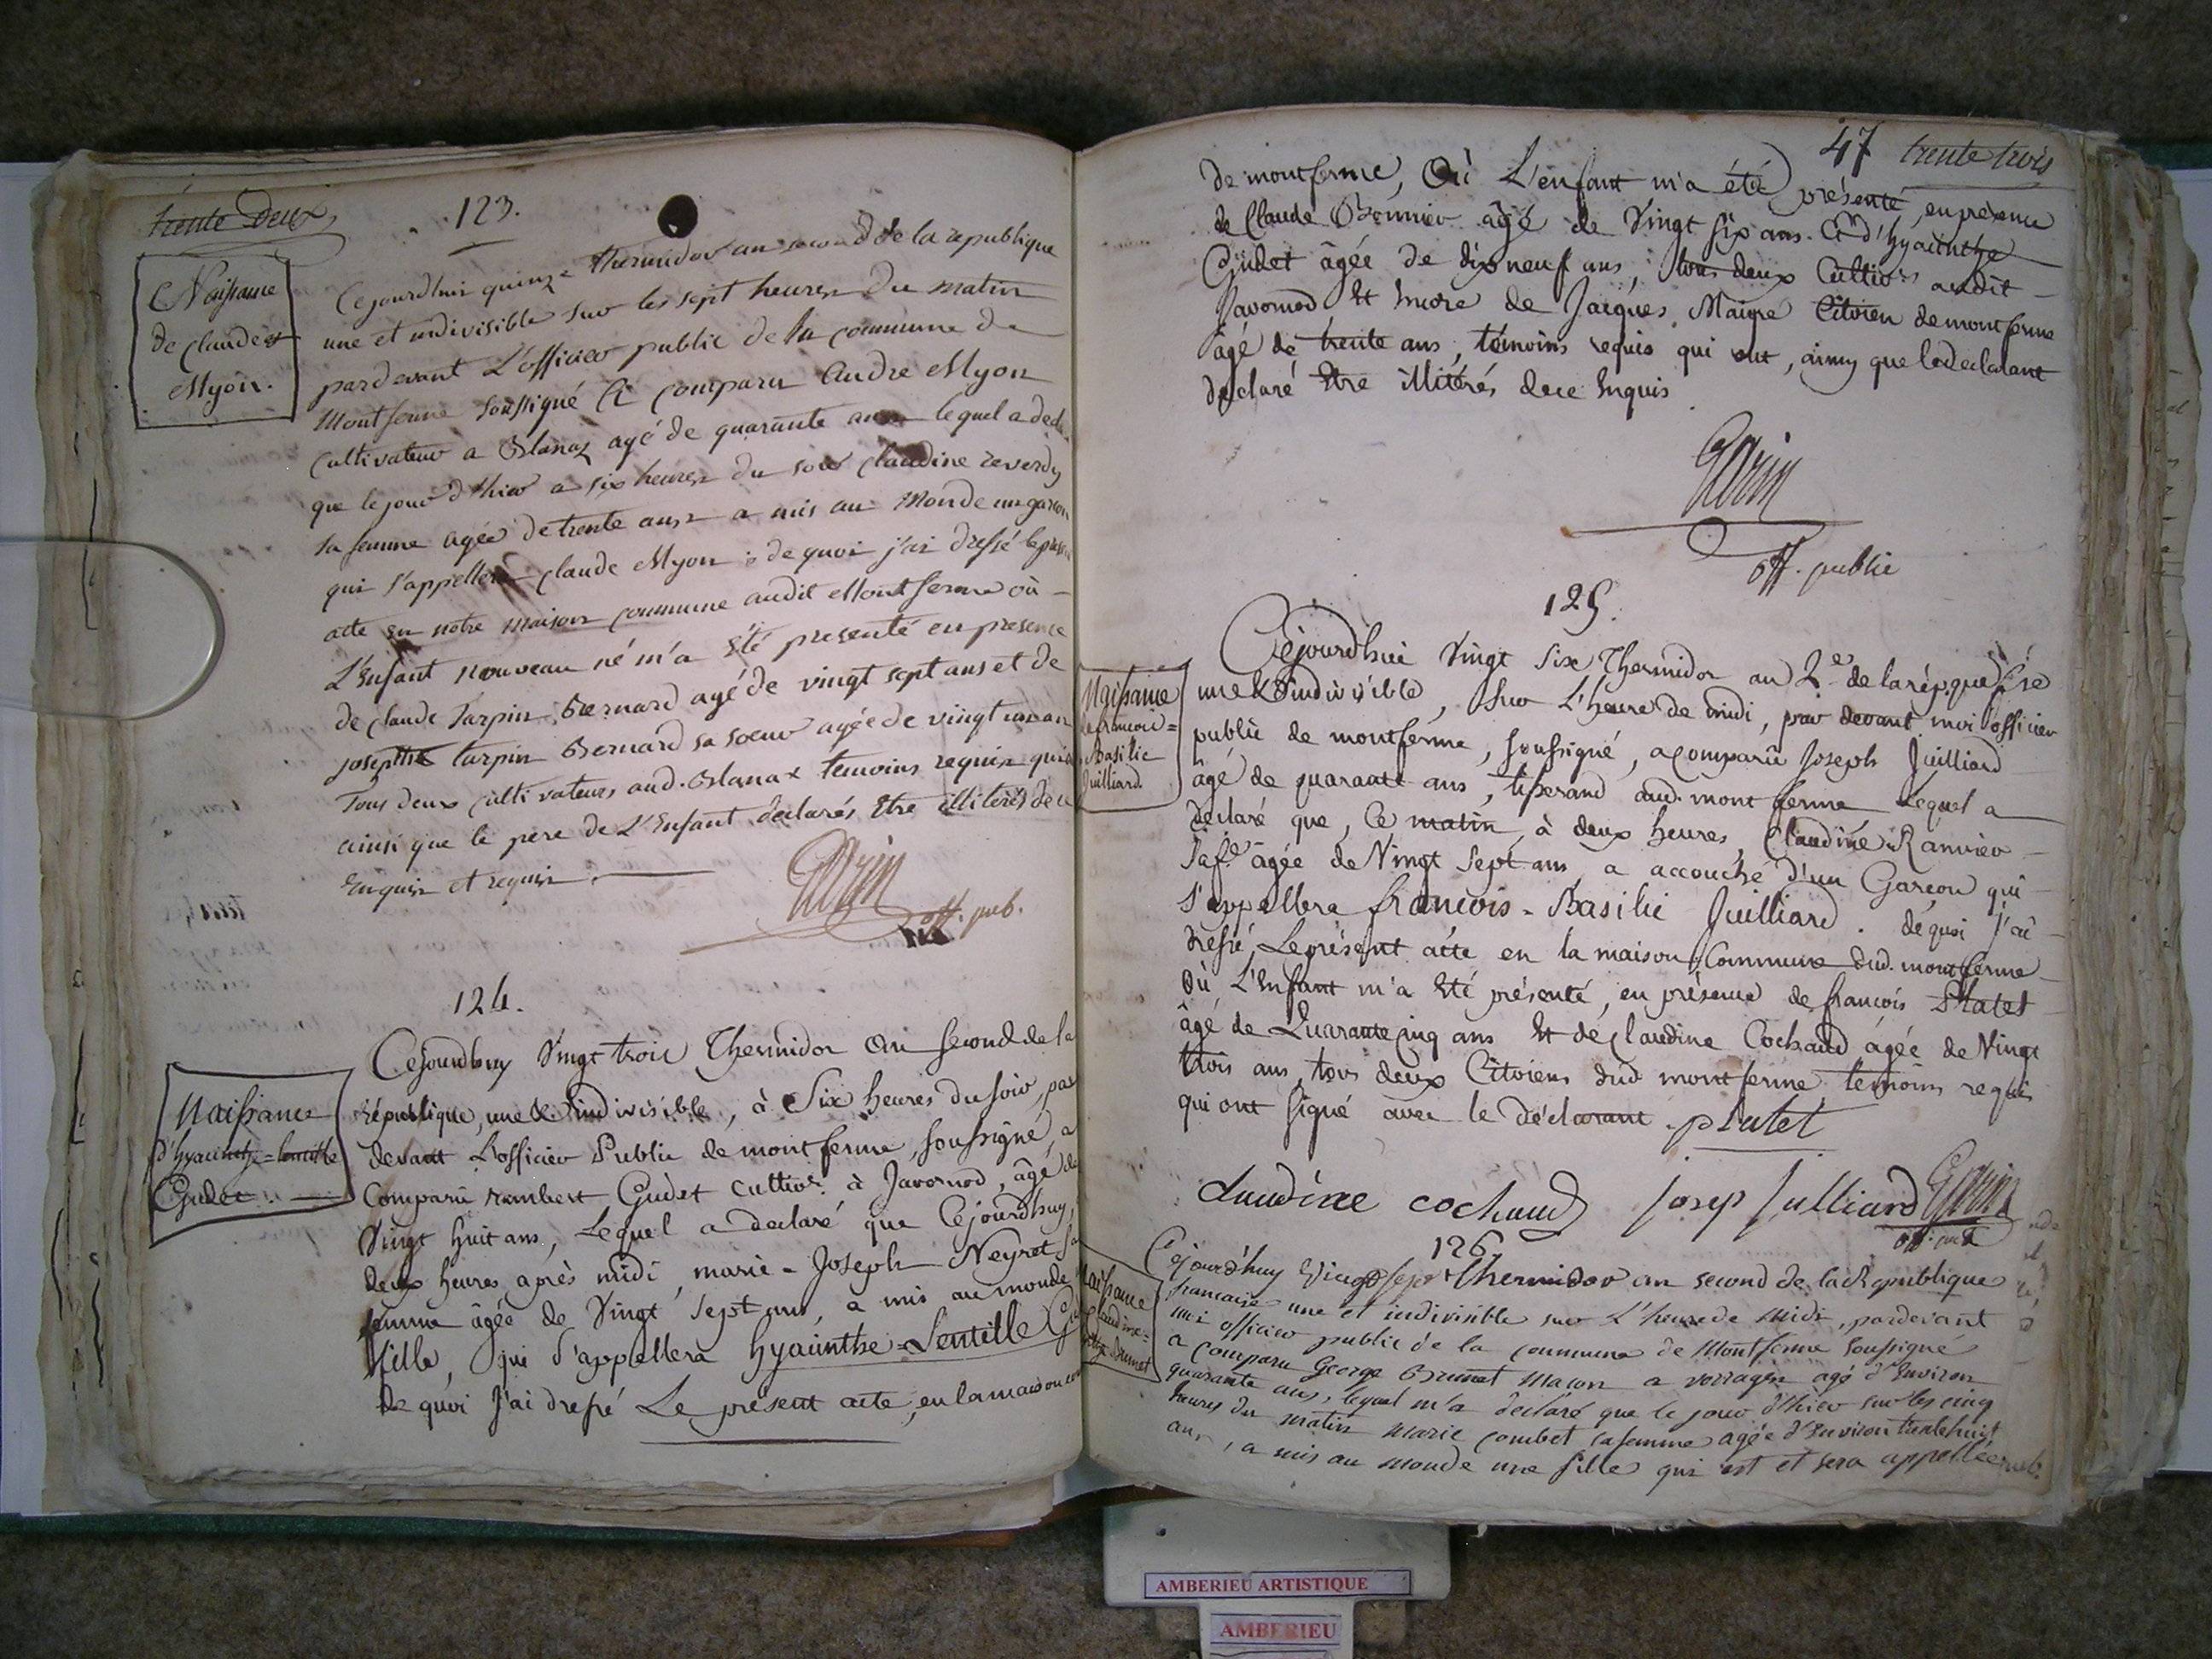 trente Deux
123.
Naissance
de claude
Myon.
Cejourdhui quinze thermidor an second de la republique
une et indivisible sur les sept heures du matin
pardevant L'officier public de la commune de
Montferme soussigné a comparu Andre Myon
cultivateur a Blanaz agé de quarante ans lequel a decl
que le jour d'hier a six heures du soir claudine reverdy
sa femme agée de trente ans a mis au monde un garcon
qui s'appellera claude Myon ; de quoi j'ai dressé le prese
acte en notre maison commune audit Montferme où
L'Enfant nouveau né m'a été presenté en presence
de claude tarpin Bernard agé de vingt sept ans et de
josephte tarpin Bernard sa soeur agée de vingt un an
Tous deux cultivateurs aud. Blanax temoins requis qui
ainsi que le pere de L'Enfant declarés Etre illiterés de ce
Enquis et requis.
Garin
off. pub.
124.
Naissance
d'hyacinthe =
Gudet
Cejourdhuy Vingt trois Thermidor an second de la
république, une & indivisible, à Six heures du soir, par
devant L'officier Public de montferme, soussigné, a
comparû rambert Gudet cultivr. à Javornod, âgé de
Vingt huit ans, Lequel a declaré que Cejourdhuy,
deux heures après midi, marie-Joseph Neyret sa
femme âgée de Vingt sept ans, a mis au monde
fille, qui s'appellera hyacinthe=Lentille Gu
de quoi J'ai dressé Le présent acte, en la maison com
47 trente trois
de montferme, Où L'enfant m'a été présenté, en présence
de Claude Bonnier âgé de Vingt six ans & d'hyacinthe
Gudet âgée de dix neuf ans, tous deux Cultivrs audit
Javornod, Et Encore de Jacques Maigre Citoien de montferme
âgé de trente ans, témoins requis qui ont, ainsy que le declarant
déclaré Etre illitérés de ce Enquis
Garin
off. public
125.
Naissance
de francois=
Basilie
Juilliard
Cejourdhui Vingt Six Thermidor an 2e de la répque fse
une & indivisible, Sur L'heure de midi, par devant moi officier
public de montferme, soussigné, a comparû Joseph Juilliard
âgé de quarante ans, tisserand aud. montferme Lequel a
déclaré que, Ce matin, à deux heures, Claudine Ranvier
sa fe âgée de Vingt sept ans, a accouché d'un Garçon qui
s'appellera françois-Basilie Juilliard. de quoi j'ai
dressé, Le présent acte en la maison Commune dud. montferme
Où L'Enfant m'a Eté présenté, en présence de françois Platet
âgé de Quarante cinq ans Et de Claudine Cochaud âgée de Vingt
trois ans, tous deux Citoiens dud montferme temoins requis
qui ont signé avec le déclarant. platet
claudine cochaud josep julliard Garin
off. pub
126.
Naissance
Claudine=
Brunet
Cejourd'huy Vingt sept thermidor an second de la Republique
francaise une et indivisible sur L'heure de midi, pardevant
moi officier public de la commune de Montferme soussigné
a comparu George Brunet macon a vorages agé d'Environ
quarante ans, lequel m'a declaré que le jour d'hier sur les cinq
heures du matin marie combet sa femme agée d'Environ trente huit
ans, a mis au monde une fille qui est et sera appellée
AMBERIEU ARTISTIQUE
AMBERIEU